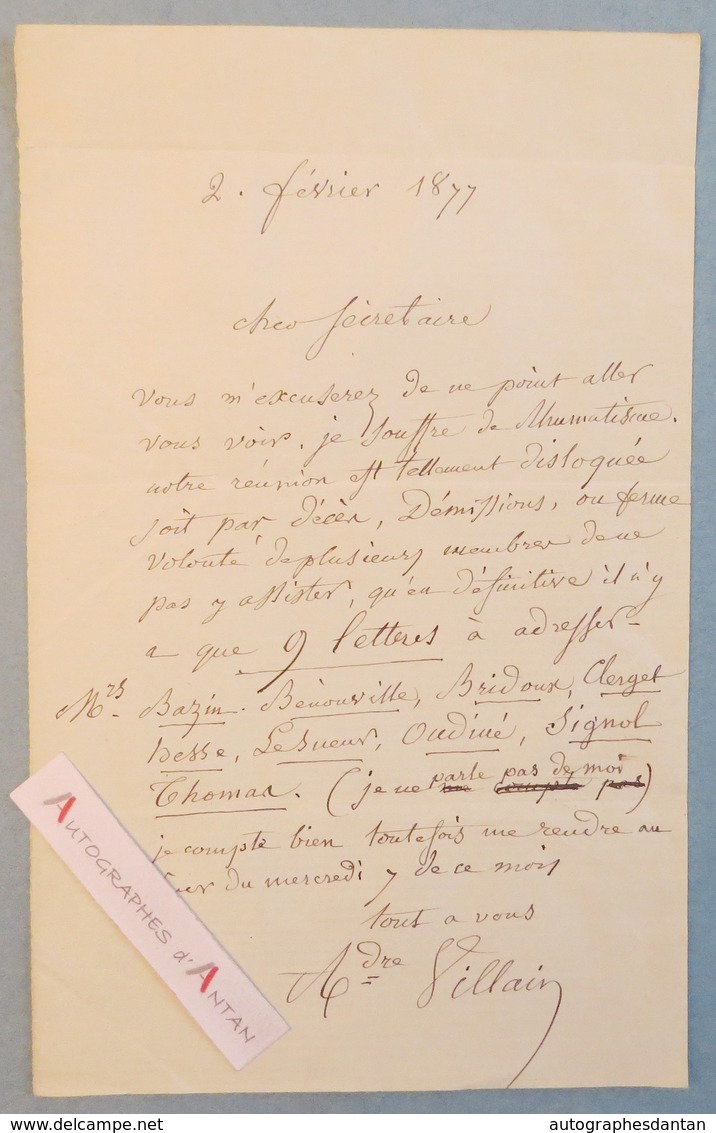 2. février 1877
cher Sécretaire
vous m'excuserez de ne point aller
vous voir. je souffre de Rhumatisme.
notre réunion est tellement disloquée
soit par décès, Démissions, ou ferme
volonté de plusieurs membres de ne
pas y assister, qu'en définitive il n'y
a que 9 lettres à adresser -
Mrs. Bazin. Bénouville, Bridoux, Clerget
hesse, LeSueur, Oudiné, Signol
Thomas. (je ne parle pas de moi)
je compte bien toutefois me rendre au
du mercredi 7 de ce mois
tout a vous
Adre Villain
AUTOGRAPHES d'ANTAN
www.delcampe.net
autographesdantan